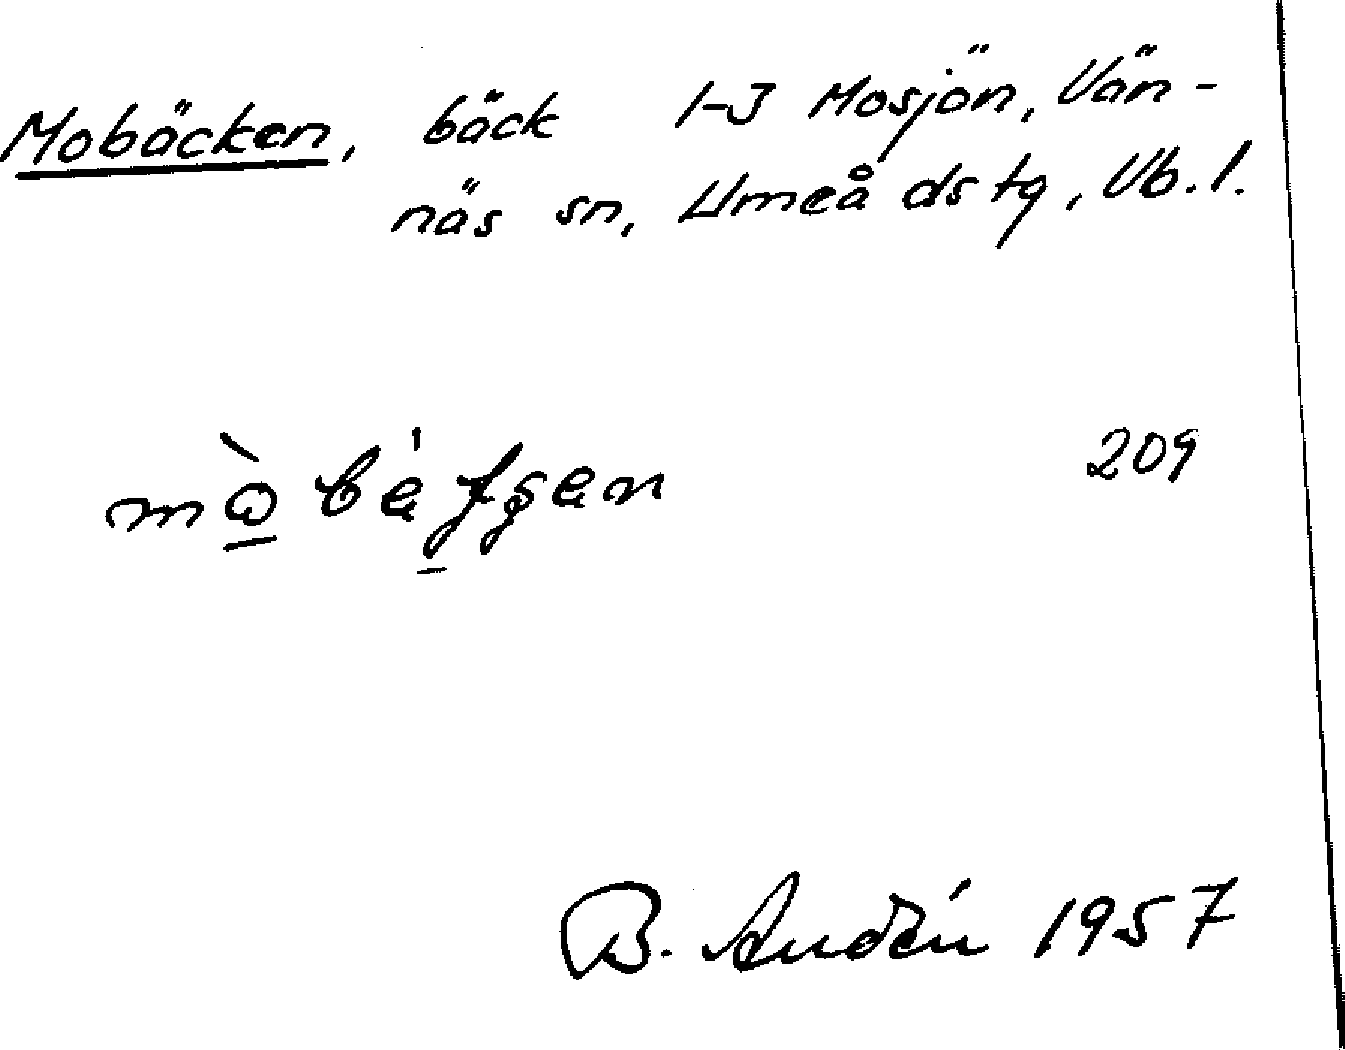 Mobäcken, bäck 1-3 Mosjön, Vän-
näs sn, Umeå dstg, Vb. l.
209
B. Audén 1957